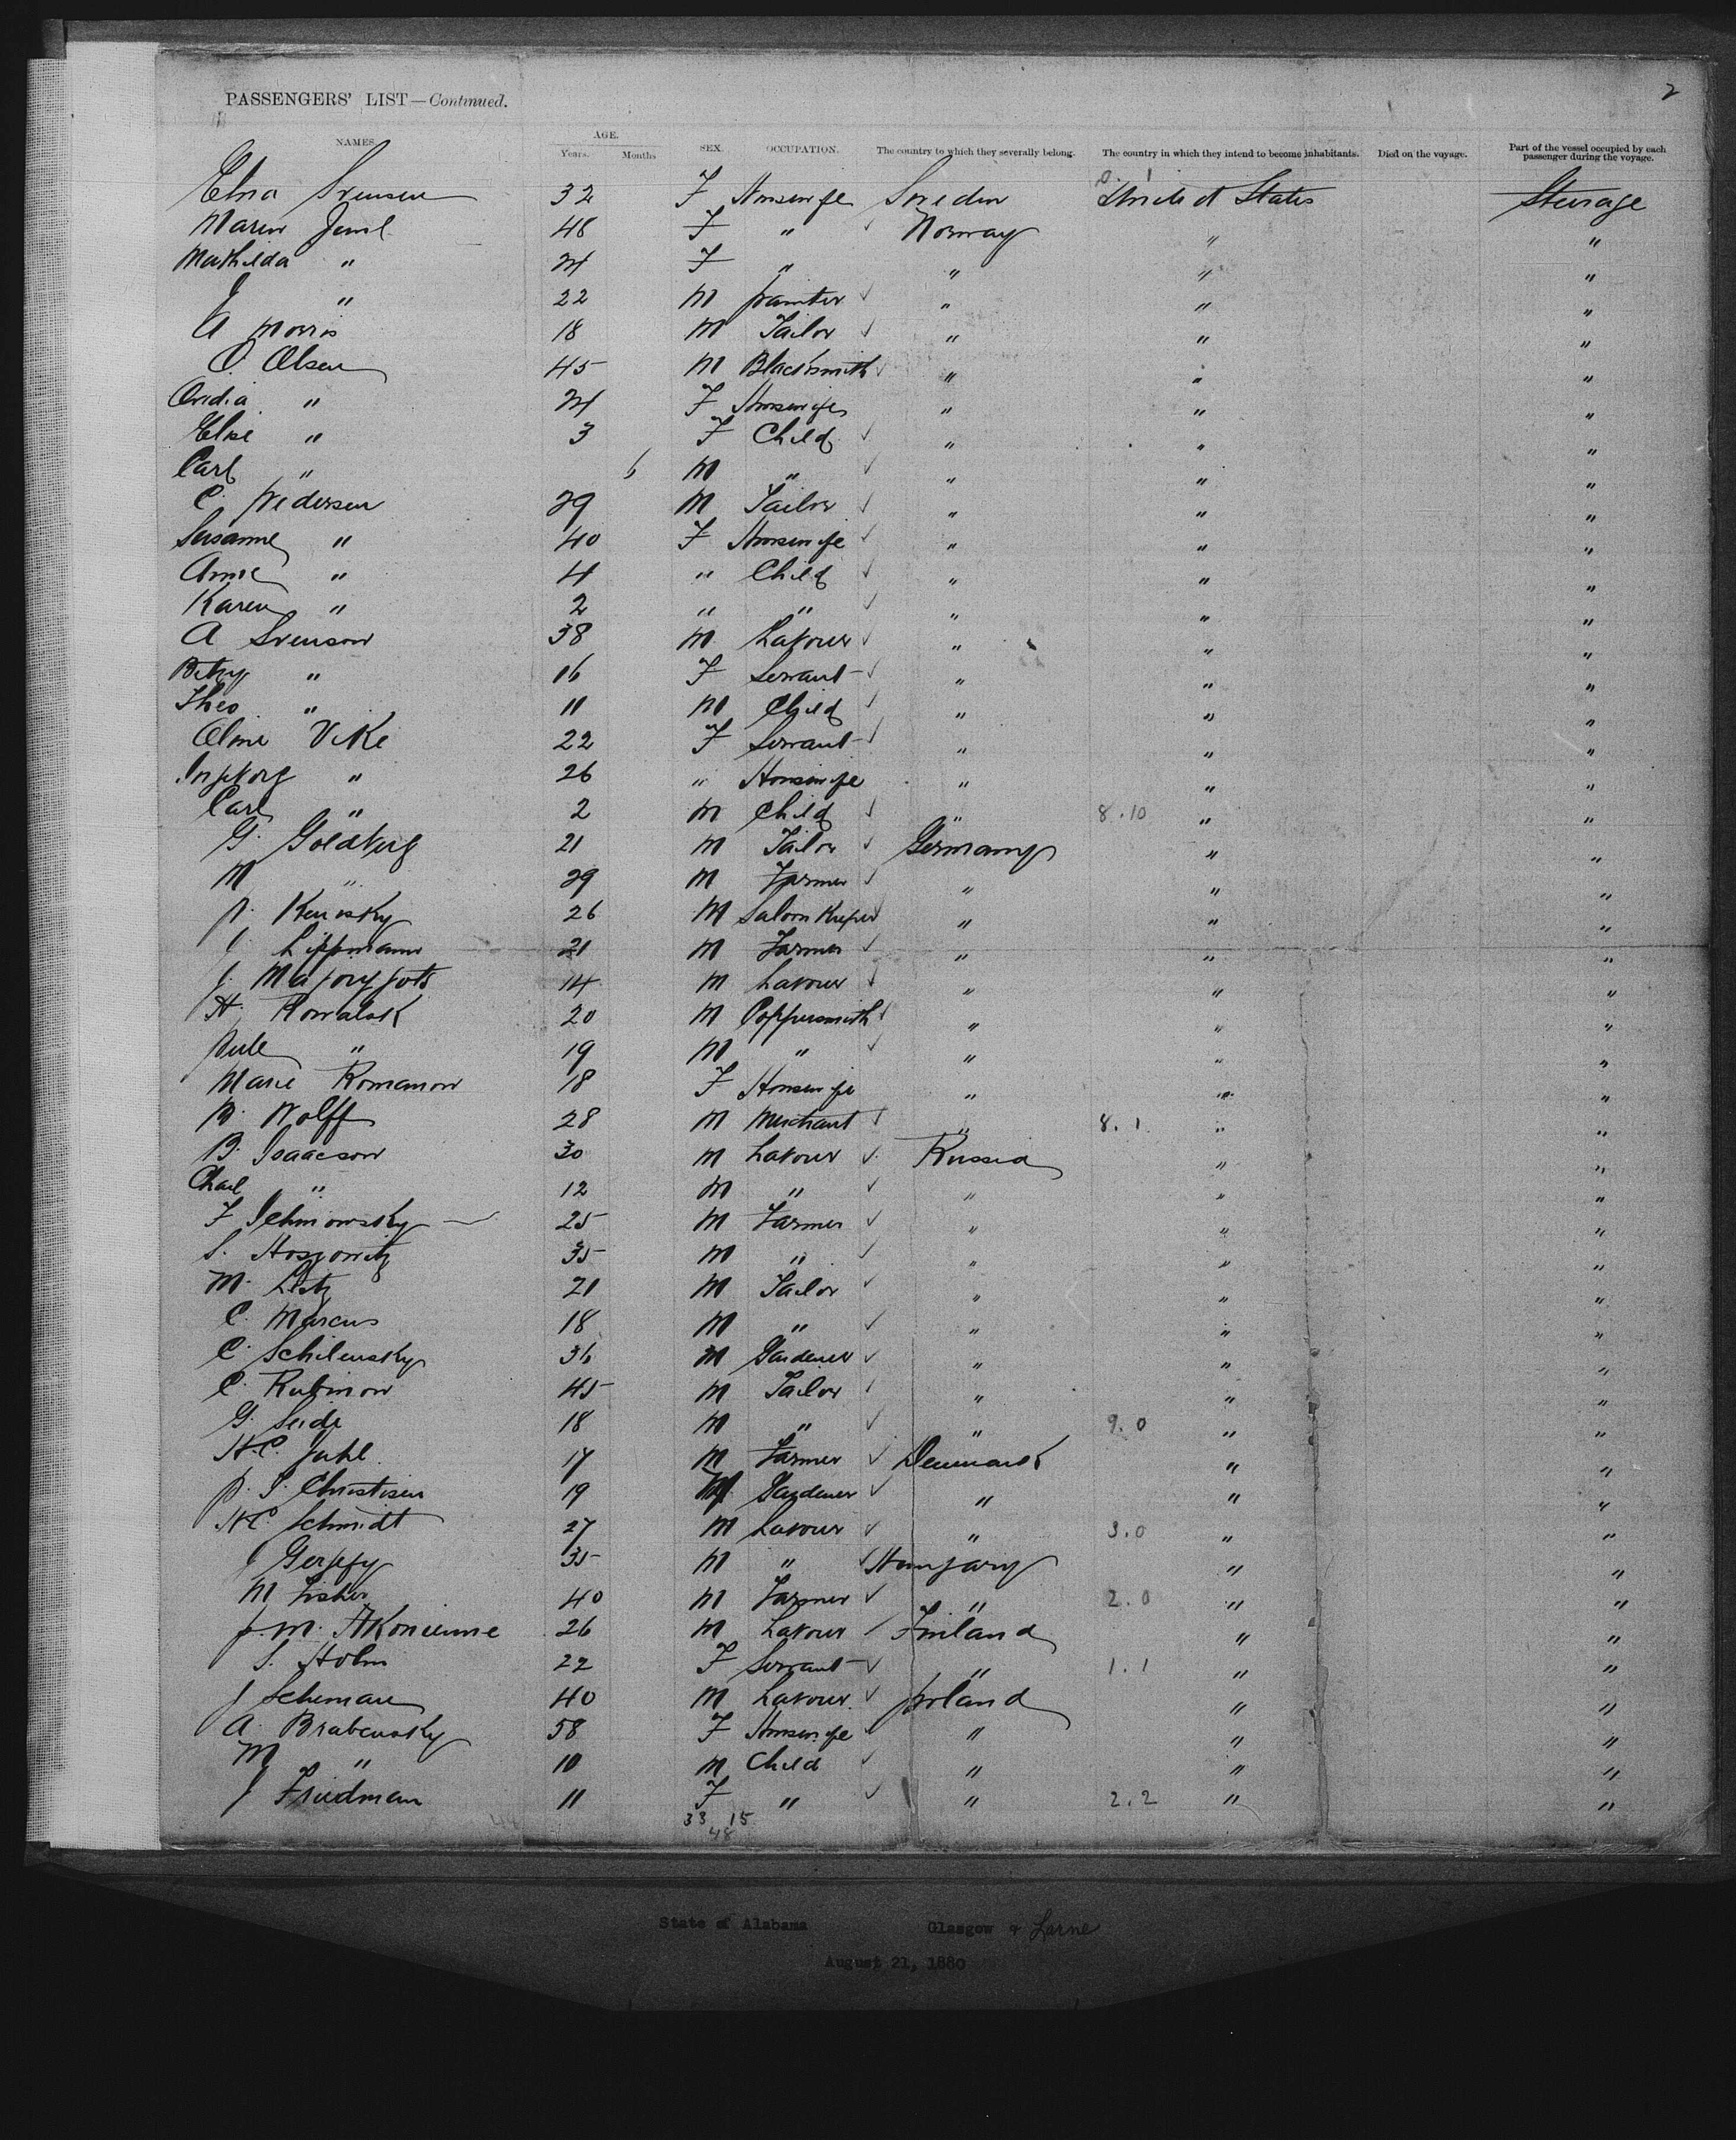 2
PASSENGERS' LIST—Continued.
NAMES. AGE. Years. Months SEX. OCCUPATION. The country to which they severally belong. The country in which they intend to become inhabitants. Died on the voyage. Part of the vessel occupied by each passenger during the voyage.
0. 1
Elna Svensen 32 F Housewife Sweden United States Steerage
Maren Juul 48 F " Norway " "
Mathilda " 24 F " " " "
J " 22 M painter " " "
A Morris 18 M Tailor " " "
O. Olsen 45 M Blacksmith " " "
Ovidia " 24 F Housewife " " "
Elise " 3 F Child " " "
Carl " 6 M " " " "
C. Pedersen 29 M Tailor " " "
Susanne " 40 F Housewife " " "
Annie " 4 " Child " " "
Karen " 2 " " " " "
A Svenson 38 M Labourer " " "
Betsy " 16 F Servant " " "
Theo " 11 M Child " " "
Oline Vike 22 F Servant " " "
Ingeborg " 26 " Housewife " " "
Carl " 2 M Child " 8.10 " "
G. Goldberg 21 M Tailor Germany " "
M " 29 M Farmer " " "
P. Kenisky 26 M Saloon Keeper " " "
J Lippmann 21 M Farmer " " "
J. 14 M Labourer " " "
H. Kowalsk 20 M Coppersmith " " "
" 19 M " " " "
Marie Romanow 18 F Housewife " " "
B. Wolff 28 M Merchant " 8.1 " "
B. Isaacson 30 M Labourer Russia " "
Chael " 12 M " " " "
F 25 M Farmer " " "
S. 35 M " " " "
M. 21 M Tailor " " "
C. Marcus 18 M " " " "
C. Schilensky 36 M Gardener " " "
C. Rubinow 45 M Tailor " " "
G. Seide 18 M " " 9.0 " "
H.C. Juhl 17 M Farmer Denmark " "
P. S. Christisen 19 M Gardener " " "
H.C. Schmidt 27 M Labourer " 3.0 " "
J 35 M " Hungary " "
M Fisher 40 M Farmer " 2.0 " "
J. M. 26 M Labourer Finland " "
S. Holm 22 F Servant " 1.1 " "
J Scheman 40 M Labourer Poland " "
A. Brabensky 58 F Housewife " " "
M " 10 M Child " " "
J Friedman 11 F " " 2.2 " "
33 15
48
State of Alabama Glasgow & Larne
August 21, 1880